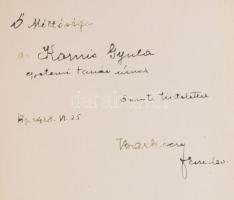 Ő Méltósága
dr. Kornis Gyula
egyetemi tanár úrnak
őszinte tisztelettel
Bp. 1928. VI. 25